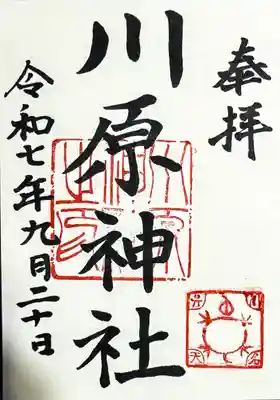 奉拝
川原神社
令和七年九月二十日